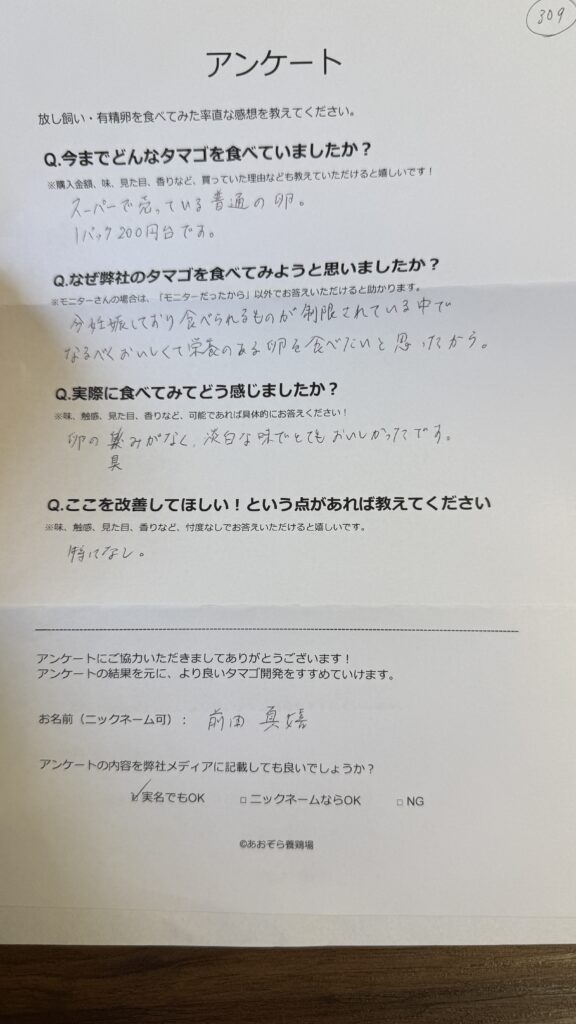 309
アンケート
放し飼い・有精卵を食べてみた率直な感想を教えてください。
Q.今までどんなタマゴを食べていましたか？
※購入金額、味、見た目、香りなど、買っていた理由なども教えていただけると嬉しいです！
スーパーで売っている普通の卵。
1パック200円台です。
Q.なぜ弊社のタマゴを食べてみようと思いましたか？
※モニターさんの場合は、「モニターだったから」以外でお答えいただけると助かります。
今妊娠しており食べられるものが制限されている中で
なるべくおいしくて栄養のある卵を食べたいと思ったから。
Q.実際に食べてみてどう感じましたか？
※味、触感、見た目、香りなど、可能であれば具体的にお答えください！
卵の みがなく、淡白な味でとてもおいしかったです。
臭
Q.ここを改善してほしい！という点があれば教えてください
※味、触感、見た目、香りなど、忖度なしでお答えいただけると嬉しいです。
特になし。
アンケートにご協力いただきましてありがとうございます！
アンケートの結果を元に、より良いタマゴ開発をすすめていけます。
お名前（ニックネーム可）： 前田 真嬉
アンケートの内容を弊社メディアに記載しても良いでしょうか？
☑実名でもOK □ニックネームならOK □NG
©あおぞら養鶏場